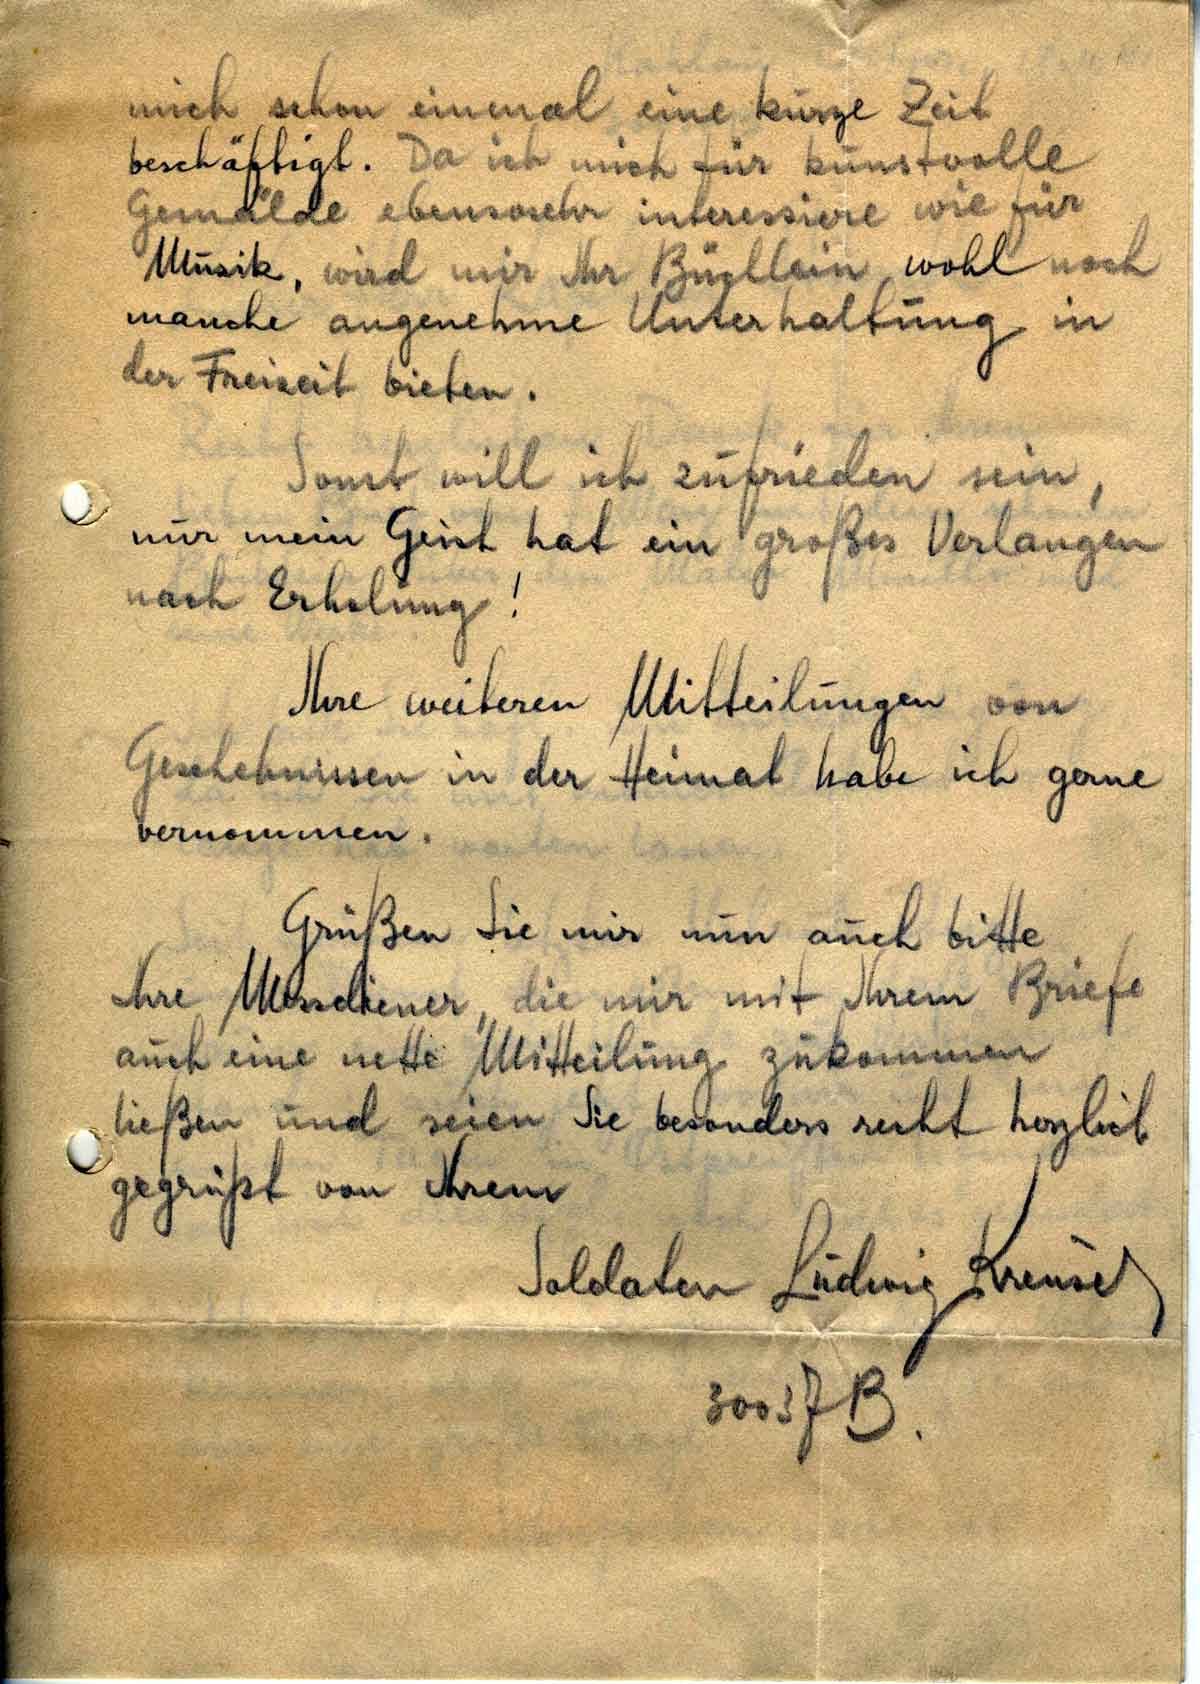 mich schon einmal eine kurze Zeit
beschäftigt. Da ich mich für kunstvolle
Gemälde ebensosehr interessiere wie für
Musik, wird mir Ihr Büchlein wohl noch
manche angenehme Unterhaltung in
der Freizeit bieten.
Sonst will ich zufrieden sein,
nur mein Geist hat ein großes Verlangen
nach Erholung!
Ihre weiteren Mitteilungen von
Geschehnissen in der Heimat habe ich gerne
vernommen.
Grüßen Sie mir nun auch bitte
Ihre Messdiener, die mir mit Ihrem Briefe
auch eine nette Mitteilung zukommen
ließen und seien Sie besonders recht herzlich
gegrüßt von Ihrem
Soldaten Ludwig Kreusel
30037 B.